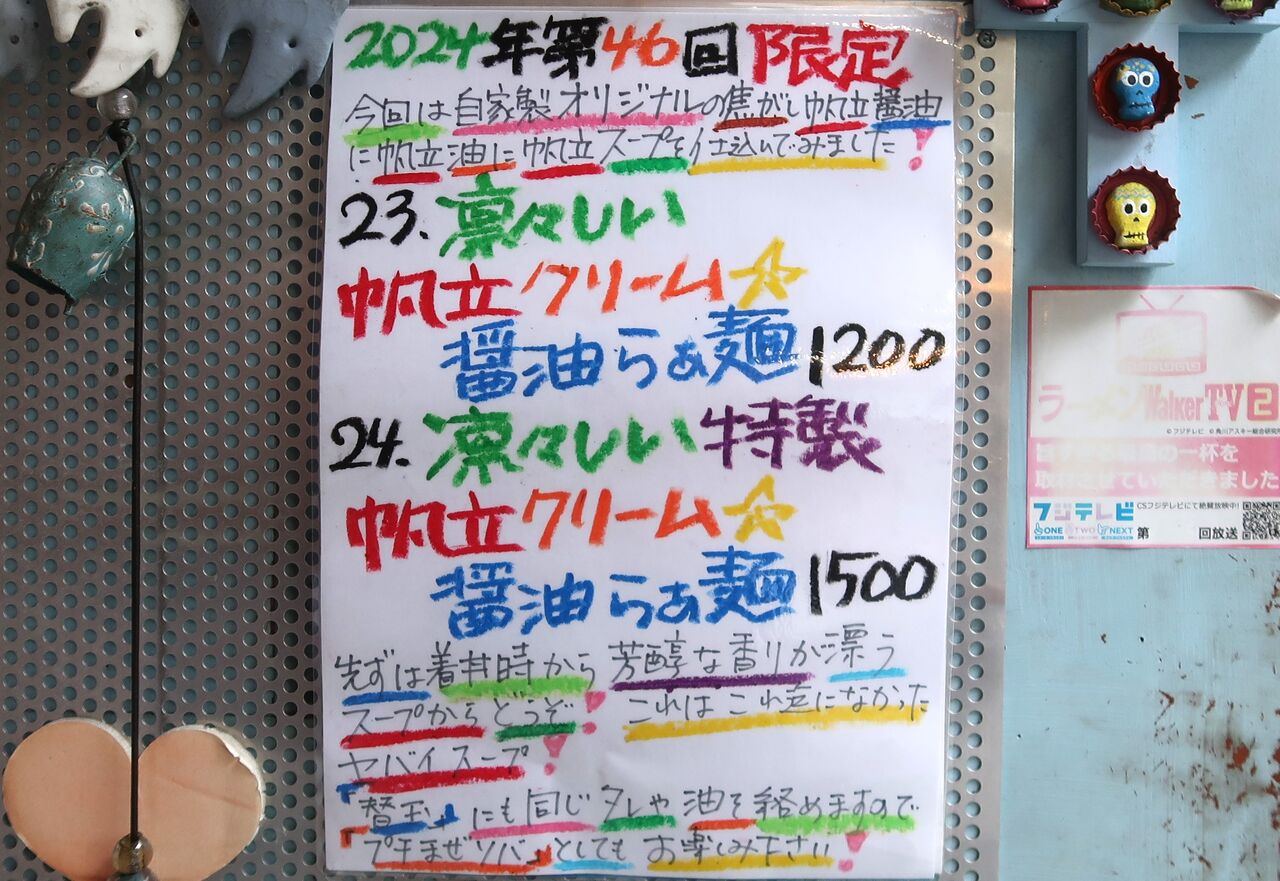 2024年第46回 限定
今回は自家製オリジナルの焦がし帆立醤油
に帆立油に帆立スープを仕込んでみました!
23. 凛々しい
帆立クリーム☆
醤油らぁ麺 1200
24. 凛々しい特製
帆立クリーム☆
醤油らぁ麺 1500
先ずは着丼時から芳醇な香りが漂う
スープからどうぞ! これはこれ迄になかった
ヤバイスープ!
『替玉』にも同じタレや油を絡めますので
『プチまぜソバ』としてもお楽しみ下さい!
ラーメンWalkerTV2
©フジテレビ ©角川アスキー総合研究所
の一杯を
取材させていただきました
フジテレビ
CSフジテレビにて絶賛放映中!
ONE TWO NEXT
第 回放送